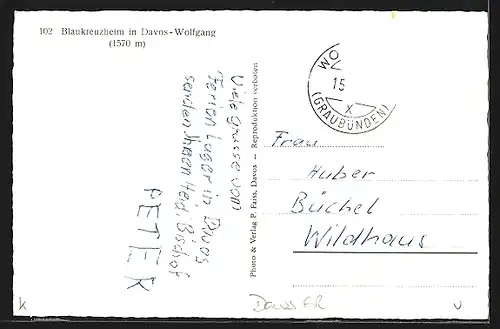 102 Blaukreuzheim in Davos-Wolfgang
(1570 m)
Viele Grüsse vom
Ferien Lager in Davos
senden Ihnen Heidi Bischof
PETER
Photo & Verlag P. Faiss, Davos — Reproduktion verboten
WOL
15
X
(GRAUBÜNDEN)
Frau
Huber
Büchel
Wildhaus
Davos GR